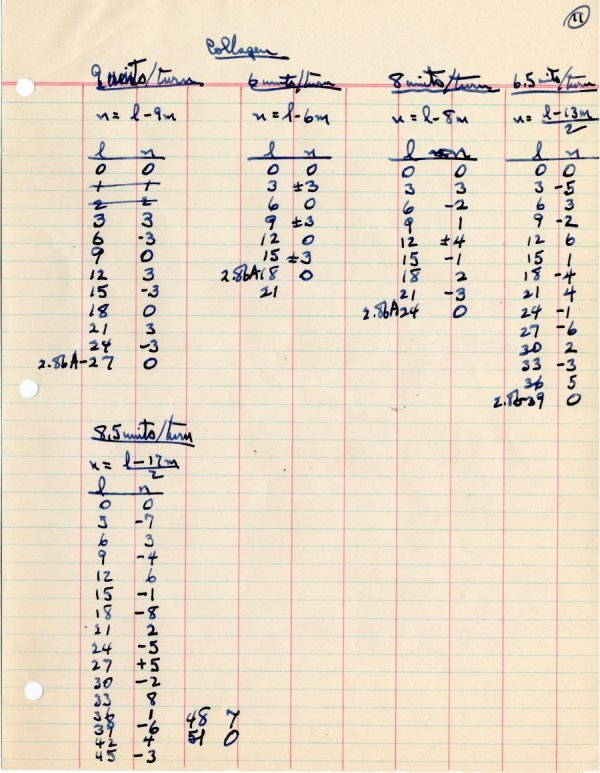 11
Collagen
9 units/turn
n = l-9m
l n
0 0
1 1
2 2
3 3
6 -3
9 0
12 3
15 -3
18 0
21 3
24 -3
2.86A-27 0
6 units/turn
n = l-6m
l n
0 0
3 ±3
6 0
9 ±3
12 0
15 ±3
2.86A18 0
21
8 units/turn
n = l-8m
l n
0 0
3 3
6 -2
9 1
12 ±4
15 -1
18 2
21 -3
2.86A24 0
6.5 units/turn
n = l-13m
2
l n
0 0
3 -5
6 3
9 -2
12 6
15 1
18 -4
21 4
24 -1
27 -6
30 2
33 -3
36 5
2.86-39 0
8.5 units/turn
n = l-17m
2
l n
0 0
3 -7
6 3
9 -4
12 6
15 -1
18 -8
21 2
24 -5
27 +5
30 -2
33 8
36 1
39 -6
42 4
45 -3
48 7
51 0